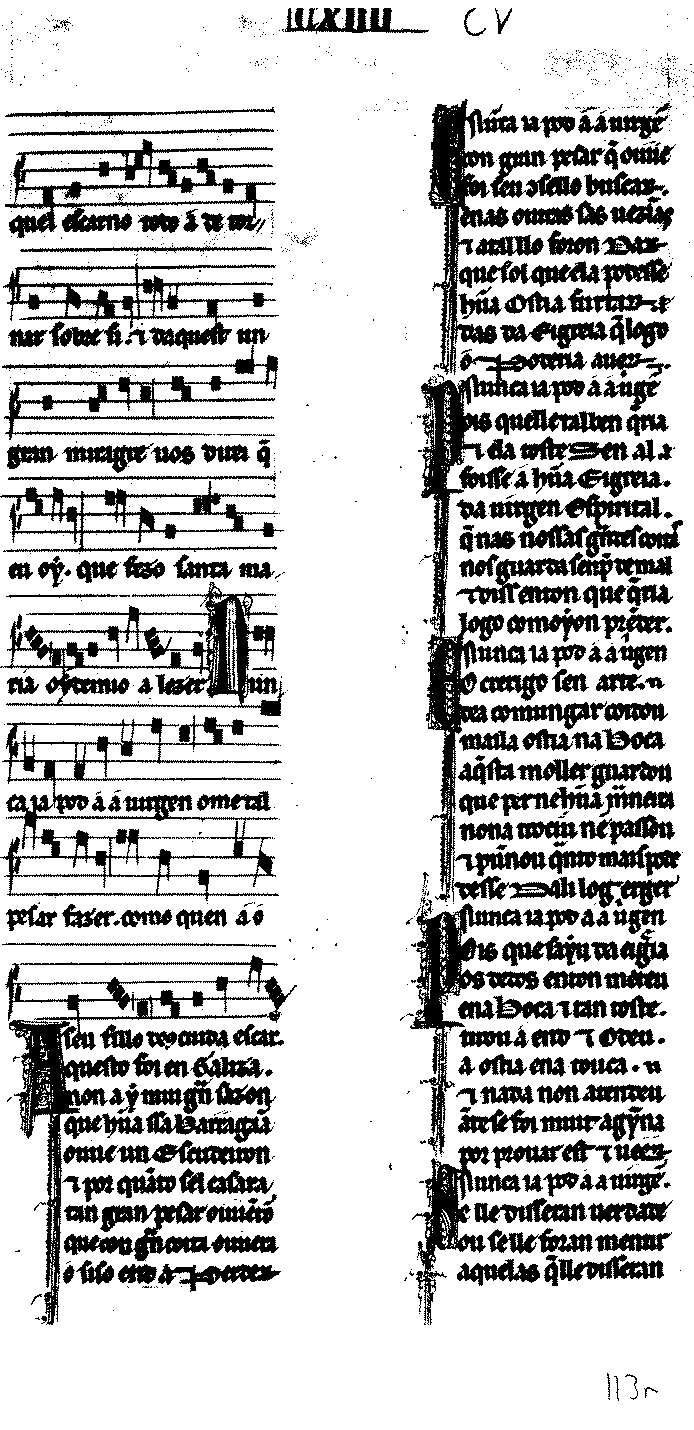 CXIIII CV
quel escarno todo á de tor
nar sobre si. ⁊ daquest un
gran miragre uos direi q̃
en oý. que fezo santa ma
ria oydemio a lezer Nun
ca ia pod á á uirgen ome tal
pesar fazer. como quen á ó
seu fillo deq cuida escar.
questo foi en Galiza.
non a ý mui gñ sazon
que hũa ssa Barragãa
ouue un Escudeiron
⁊ por quãto s'el casara
tan gran pesar ouuẽdo
que con gñ coita ouuera
o siso end á Perder
Nunca ia pod á á uirgẽ
con gran pesar q̃ ouue
foi seu ɔsello buscar.
enas outras sas uezĩas
⁊ atal llo foron Dar
que sol que ela podesse
hũa Ostia furtar
das da Eigreia q̃ logo
o Poderia auer
Nunca ia pod á á uigẽ
Pois quelle tal ben q̃ria
⁊ ela toste Sen al.
foisse a hũa Eigreia.
da uirgen Espirital.
q̃ nas nossas gñtes coitas
nos guarda senp̃ de mal
⁊ diss enton que q̃ria
logo comoyon prẽder.
Nunca ia pod á á uigen
O crerigo sen arte.
dea comungar coitou
mailla ostia na Boca
aq̃sta moller guardou
que per nehũa mñeira
nona trociu nẽ passou
⁊ punnou q̃nto mais pode
desse Dali log erger
Nunca ia pod á á uigen
Pois que sayu da eigr̃ia
os dedos enton meteu
ena Boca ⁊ tan toste.
tirou á end ⁊ Odeu.
á ostia ena touca.
⁊ nada non atendeu
ãte se foi muit agỹna
por prouar est ⁊ ueer
Nunca ia pod á á uirgẽ.
Se lle disseran uerdade
ou se lle foran mentir
aquelas q̃ lle disseran
113r